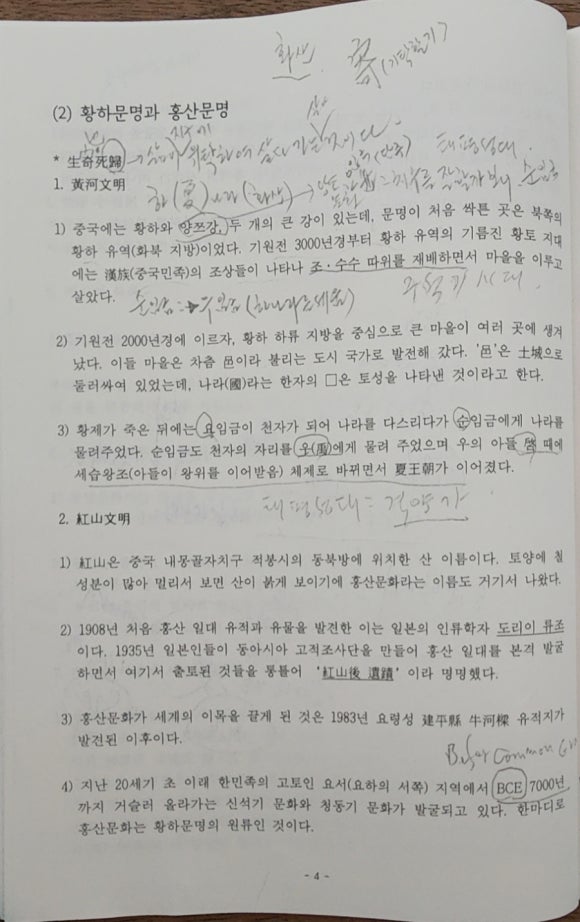 화산. 寄(기탁할기)
(2) 황하문명과 홍산문명
* 生奇死歸
1. 黃河文明
태평성대.
하(夏)나라 (화산)
1) 중국에는 황하와 양쯔강, 두 개의 큰 강이 있는데, 문명이 처음 싹튼 곳은 북쪽의
황하 유역(화북 지방)이었다. 기원전 3000년경부터 황하 유역의 기름진 황토 지대
에는 漢族(중국민족)의 조상들이 나타나 조·수수 따위를 재배하면서 마을을 이루고
살았다.
순임금 → 우임금 (하나라를세움)
2) 기원전 2000년경에 이르자, 황하 하류 지방을 중심으로 큰 마을이 여러 곳에 생겨
났다. 이들 마을은 차츰 邑이라 불리는 도시 국가로 발전해 갔다. '邑'은 土城으로
둘러싸여 있었는데, 나라(國)라는 한자의 □은 토성을 나타낸 것이라고 한다.
3) 황제가 죽은 뒤에는 요임금이 천자가 되어 나라를 다스리다가 순임금에게 나라를
물려주었다. 순임금도 천자의 자리를 우(禹)에게 물려 주었으며 우의 아들 啓 때에
세습왕조(아들이 왕위를 이어받음) 체제로 바뀌면서 夏王朝가 이어졌다.
태평성대 = 격양가
2. 紅山文明
1) 紅山은 중국 내몽골자치구 적봉시의 동북방에 위치한 산 이름이다. 토양에 철
성분이 많아 멀리서 보면 산이 붉게 보이기에 홍산문화라는 이름도 거기서 나왔다.
2) 1908년 처음 홍산 일대 유적과 유물을 발견한 이는 일본의 인류학자 도리이 류조
이다. 1935년 일본인들이 동아시아 고적조사단을 만들어 홍산 일대를 본격 발굴
하면서 여기서 출토된 것들을 통틀어 '紅山後 遺蹟' 이라 명명했다.
3) 홍산문화가 세계의 이목을 끌게 된 것은 1983년 요령성 建平縣 牛河樑 유적지가
발견된 이후이다.
Common
4) 지난 20세기 초 이래 한민족의 고토인 요서(요하의 서쪽) 지역에서 BCE 7000년
까지 거슬러 올라가는 신석기 문화와 청동기 문화가 발굴되고 있다. 한마디로
홍산문화는 황하문명의 원류인 것이다.
- 4 -